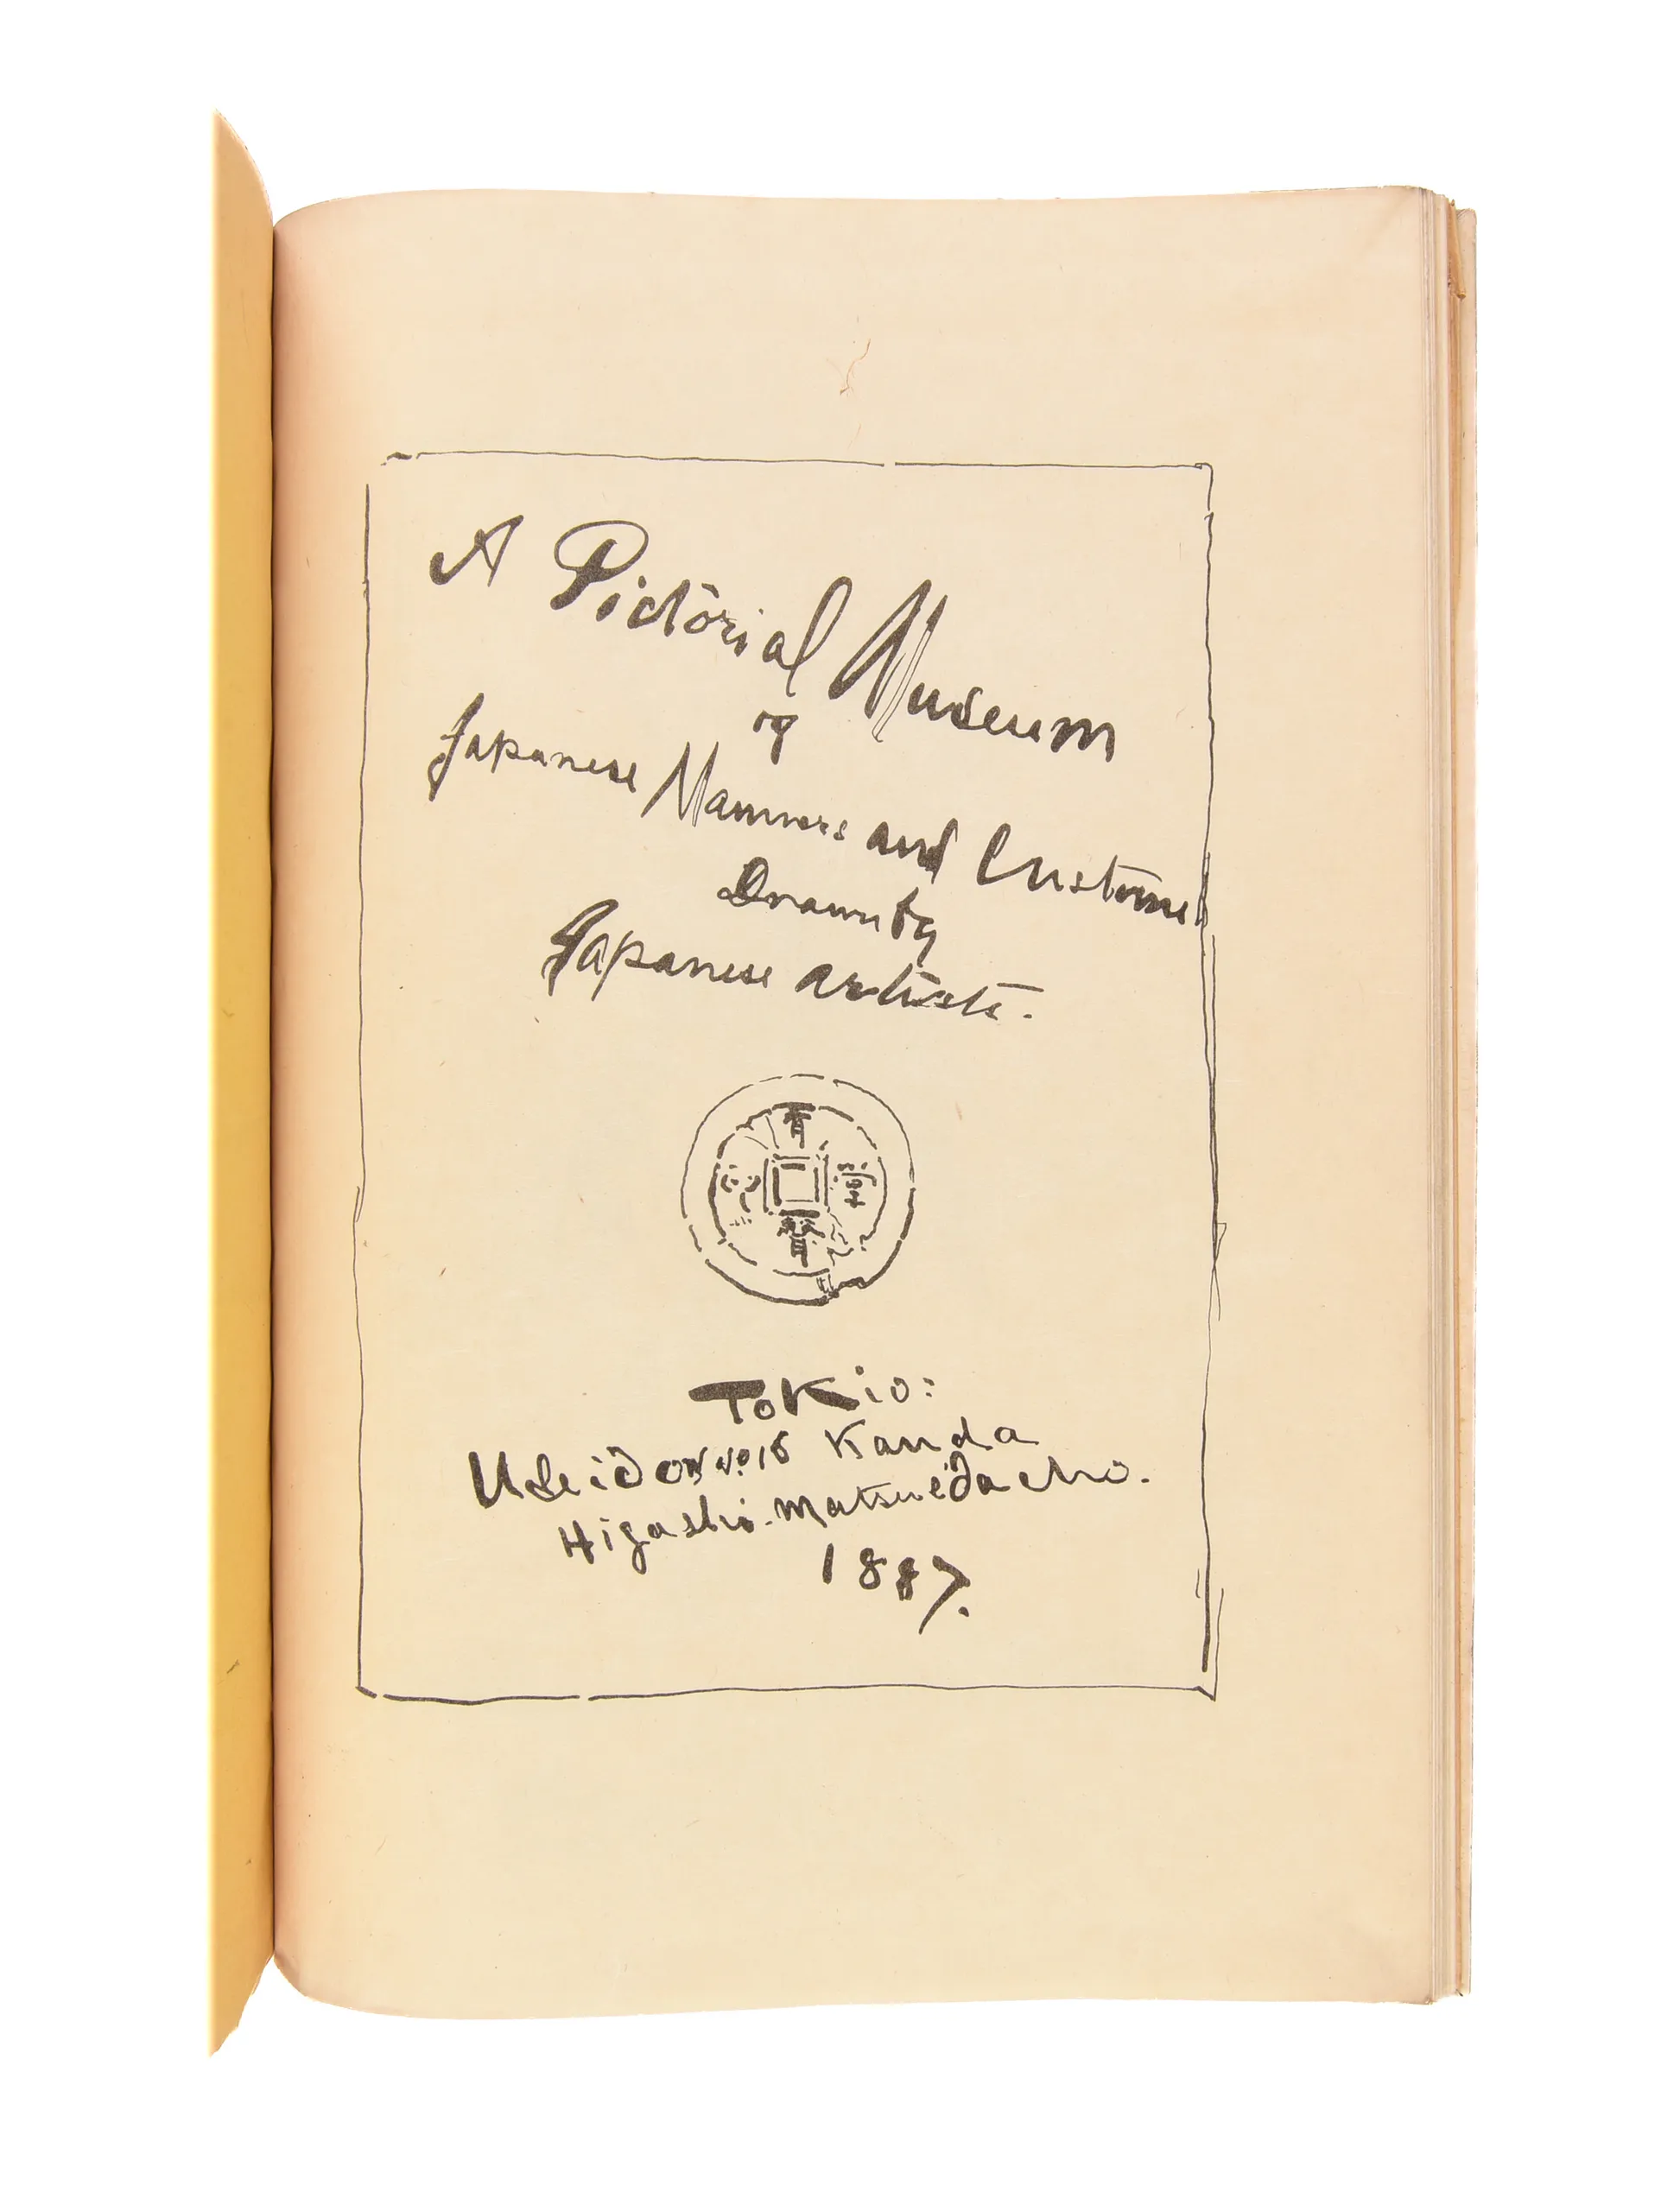 A Pictorial Museum
of
Japanese Manners and Customs
Drawn by
Japanese artists.
堂
Tokio:
No 16 Kanda
Higashi-Matsueda cho.
1887.